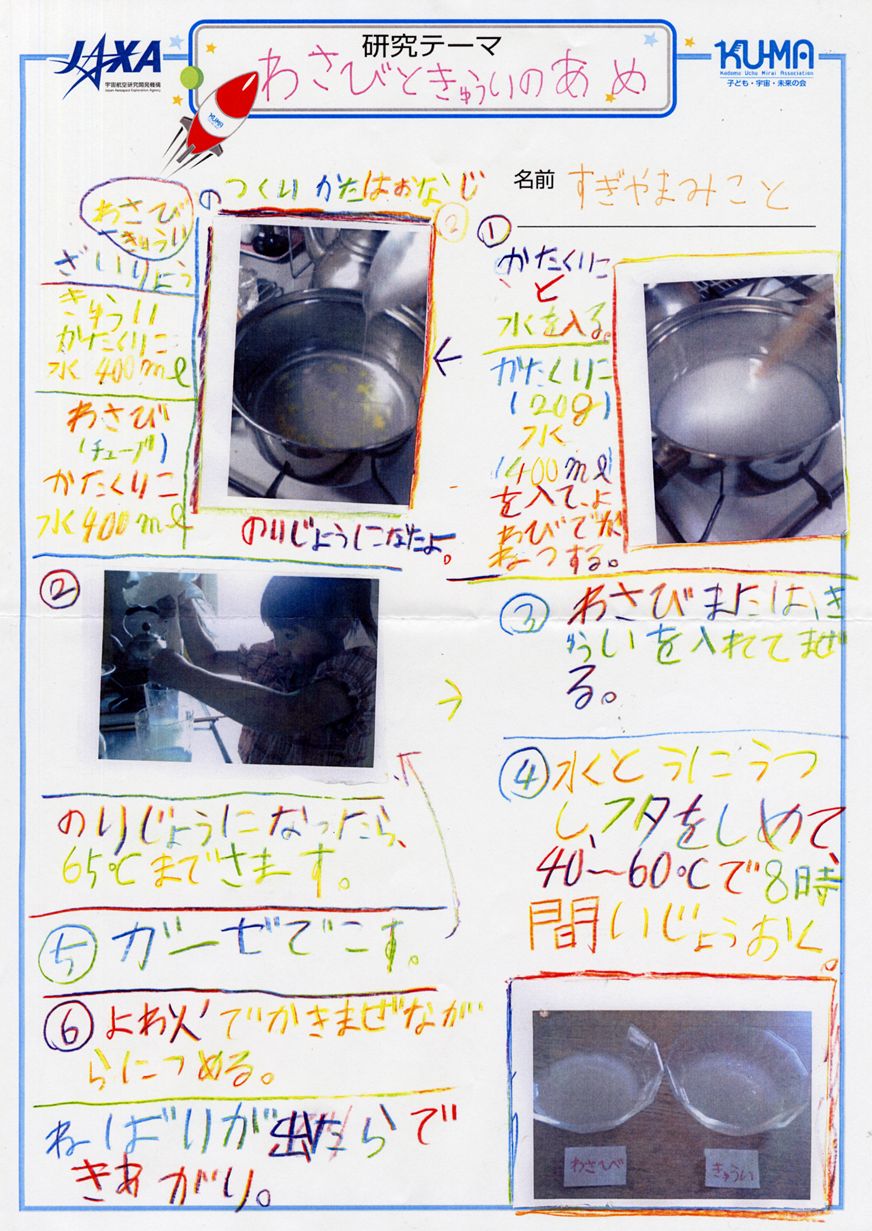 JAXA
宇宙航空研究開発機構
Japan Aerospace Exploration Agency
研究テーマ
わさびときゅういのあめ
KUMA
Kodomo Uchu Mirai Association
子ども・宇宙・未来の会
KUMA
名前 すぎやまみこと
わさび
きゅうい
のつくりかたはおなじ
ざいりょう
きゅうい
かたくりこ
水400ml
わさび
(チューブ)
かたくりこ
水400ml
①
かたくりこ
と
水を入る。
かたくりこ
(20g)
水
(400ml)
を入て、よ
わびでか
ねつする。
②
のりじょうになたよ。
②
のりじょうになったら、
65℃までさます。
③ わさびまたは、き
ゅういを入れてまぜ
る。
④ 水とうにうつ
し、フタをしめて、
40~60℃で8時
間いじょうおく。
⑤ ガーゼでこす。
⑥ よわ火でかきまぜなが
らにつめる。
ねばりが出たらで
きあがり。
わさび
きゅうい